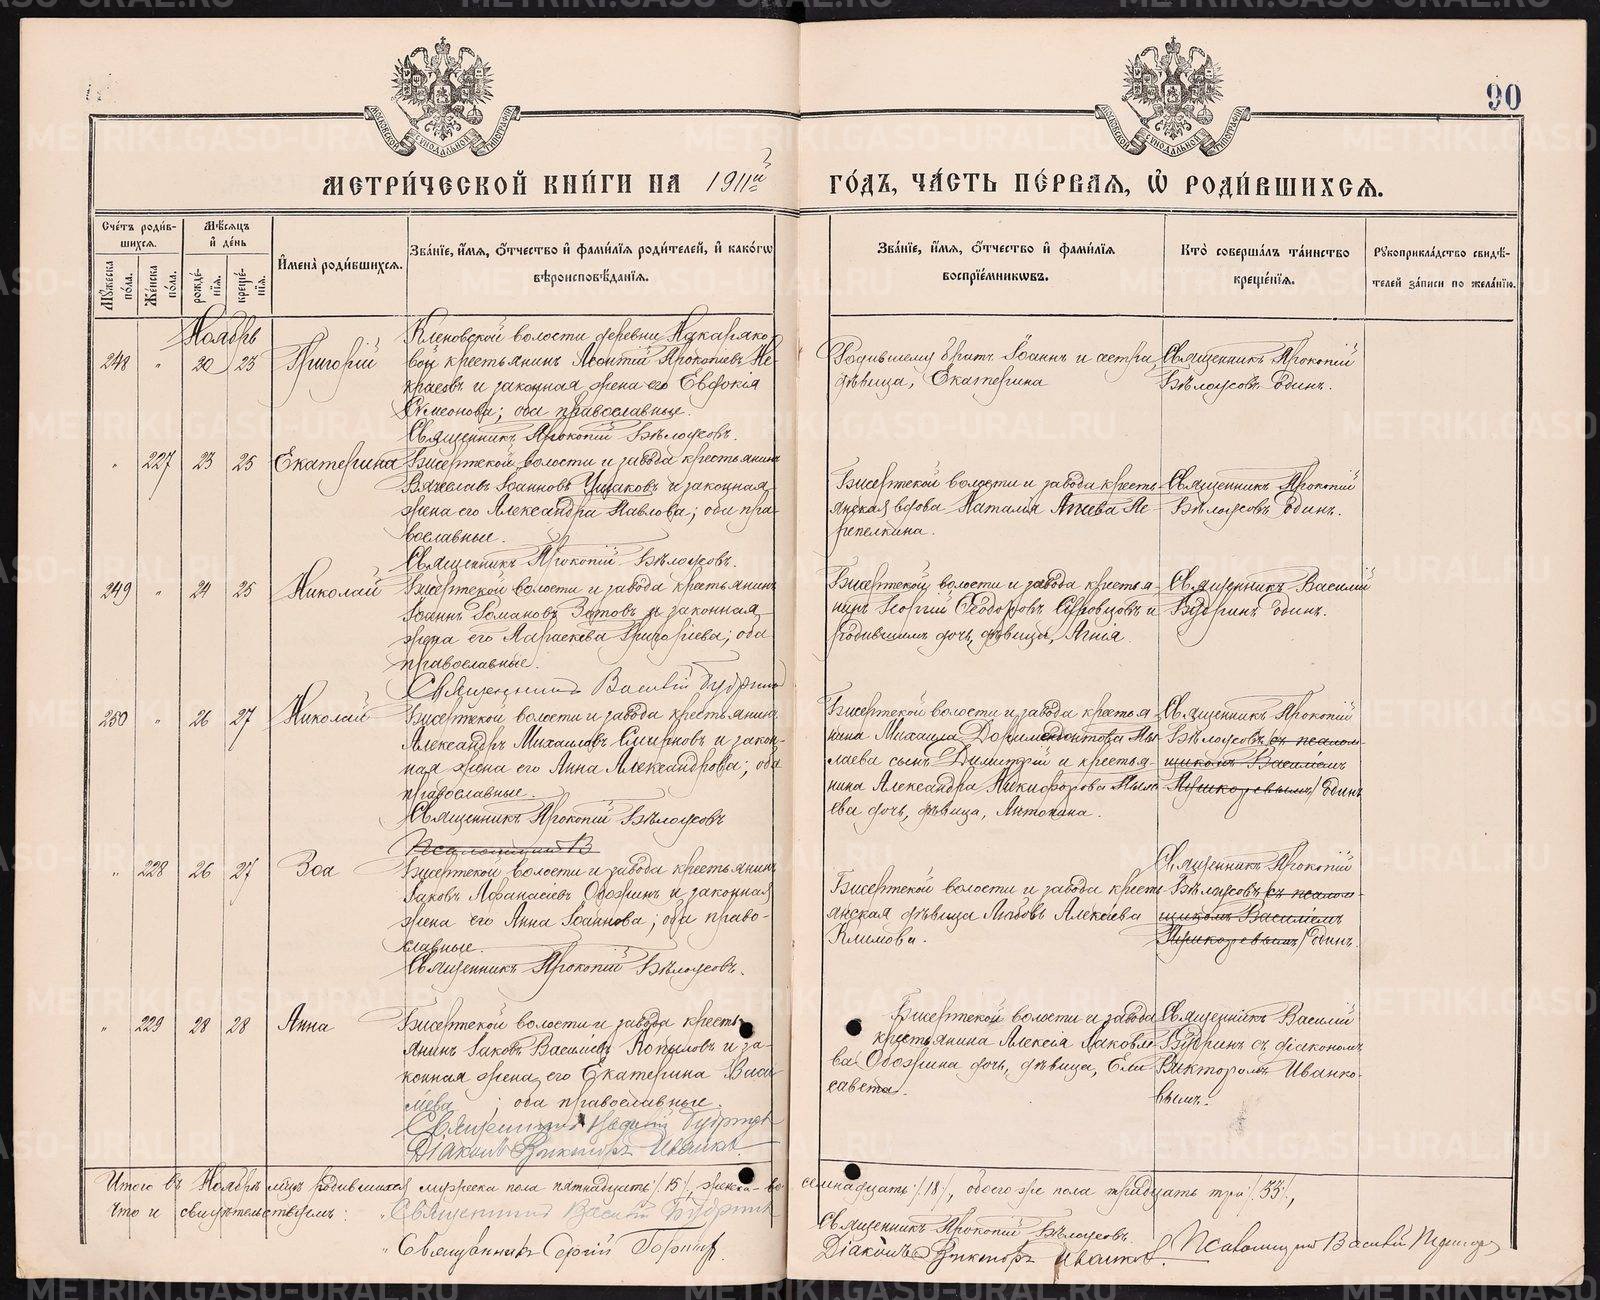 90
МЕТРИ́ЧЕСКОЙ КНИ́ГИ НА 1911й ГО́ДЪ, ЧА́СТЬ ПЕ́РВАЯ, Ѽ РОДИ́ВШИХСѦ.
Сче́тъ роди́вшихсѧ.
Мꙋ́жеска по́ла.
Же́нска по́ла.
Мѣ́сѧцъ и҆ де́нь
рожде́нїѧ.
креще́нїѧ.
И҆мена̀ роди́вшихсѧ.
Зва́нїе, и҆́мѧ, ѻ҆́тчество и҆ фами́лїѧ роди́телей, и҆ како́гѡ
вѣроисповѣ́данїѧ.
Зва́нїе, и҆́мѧ, ѻ҆́тчество и҆ фами́лїѧ
воспрїе́мникѡвъ.
Кто̀ соверша́лъ та́инство
креще́нїѧ.
Рꙋкоприкла́дство свидѣ́-
телей за́писи по жела́нїю.
Ноябрь
248 " 20 23 Григорій
Кленовской волости деревни
вой крестьянинъ Леонтій Прокопіевъ Не-
красовъ и законная жена его Евдокія
Симеонова; оба православные.
Священникъ Прокопій Бѣлоусовъ.
Родившему братъ Іоаннъ и сестра,
дѣвица, Екатерина
Священникъ Прокопій
Бѣлоусовъ одинъ.
" 227 23 25 Екатерина
Бисертской волости и завода крестьянинъ
Вячеславъ Іоанновъ Ушаковъ и законная
жена его Александра Павлова; оба пра-
вославные.
Священникъ Прокопій Бѣлоусовъ.
Бисертской волости и завода кресть-
янская вдова Наталія Пе-
репелкина.
Священникъ Прокопій
Бѣлоусовъ одинъ.
249 " 24 25 Николай
Бисертской волости и завода крестьянинъ
Іоаннъ Романовъ Зотовъ и законная
жена его Параскева Григоріева; оба
православные.
Священникъ Василій Будринъ
Бисертской волости и завода крестья-
нинъ Георгій Ѳеодоровъ и
родившимъ дочь, дѣвица, Агнія.
Священникъ Василій
Будринъ одинъ.
250 " 26 27 Николай
Бисертской волости и завода крестьянинъ
Александръ Михаиловъ Смирновъ и закон-
ная жена его Анна Александрова; оба
православные.
Священникъ Прокопій Бѣлоусовъ
Псаломщикъ В
Бисертской волости и завода крестья-
нина Михаила Доримедонтова Мы-
лаева сынъ Димитрій и крестья-
нина Александра Никифорова
ева дочь, дѣвица, Антонина.
Священникъ Прокопій
Бѣлоусовъ съ псалом-
щикомъ Василіемъ
одинъ
" 228 26 27 Зоа
Бисертской волости и завода крестьянинъ
Іаковъ Аѳанасіевъ Обожинъ и законная
жена его Анна Іоаннова; оба право-
славные.
Священникъ Прокопій Бѣлоусовъ.
Бисертской волости и завода кресть-
янская дѣвица Любовь Алексіева
Климова.
Священникъ Прокопій
Бѣлоусовъ съ псалом-
щикомъ Василіемъ
одинъ.
" 229 28 28 Анна
Бисертской волости и завода кресть-
янинъ Іаковъ Василіевъ Копыловъ и за-
конная жена его Екатерина Васи-
лієва; оба православные.
Священникъ Василій Будринъ
Діаконъ Викторъ Иванковъ.
Бисертской волости и завода
крестьянина Алексія Іаковле-
ва Обожина дочь, дѣвица, Ели-
савета.
Священникъ Василій
Будринъ съ діакономъ
Викторомъ Иванко-
вымъ.
Итого въ Ноябрѣ мцѣ родившихся мужеска пола пятнадцать /15/, женска- во- семнадцать /18/, обоего же пола тридцать три /33/,
Что и свидѣтельствуемъ: Священникъ Василій Будринъ
Священникъ Сергій
Священникъ Прокопій Бѣлоусовъ.
Діаконъ Викторъ Иванковъ. Псаломщикъ Василій
METRIKI.GASO-URAL.RU